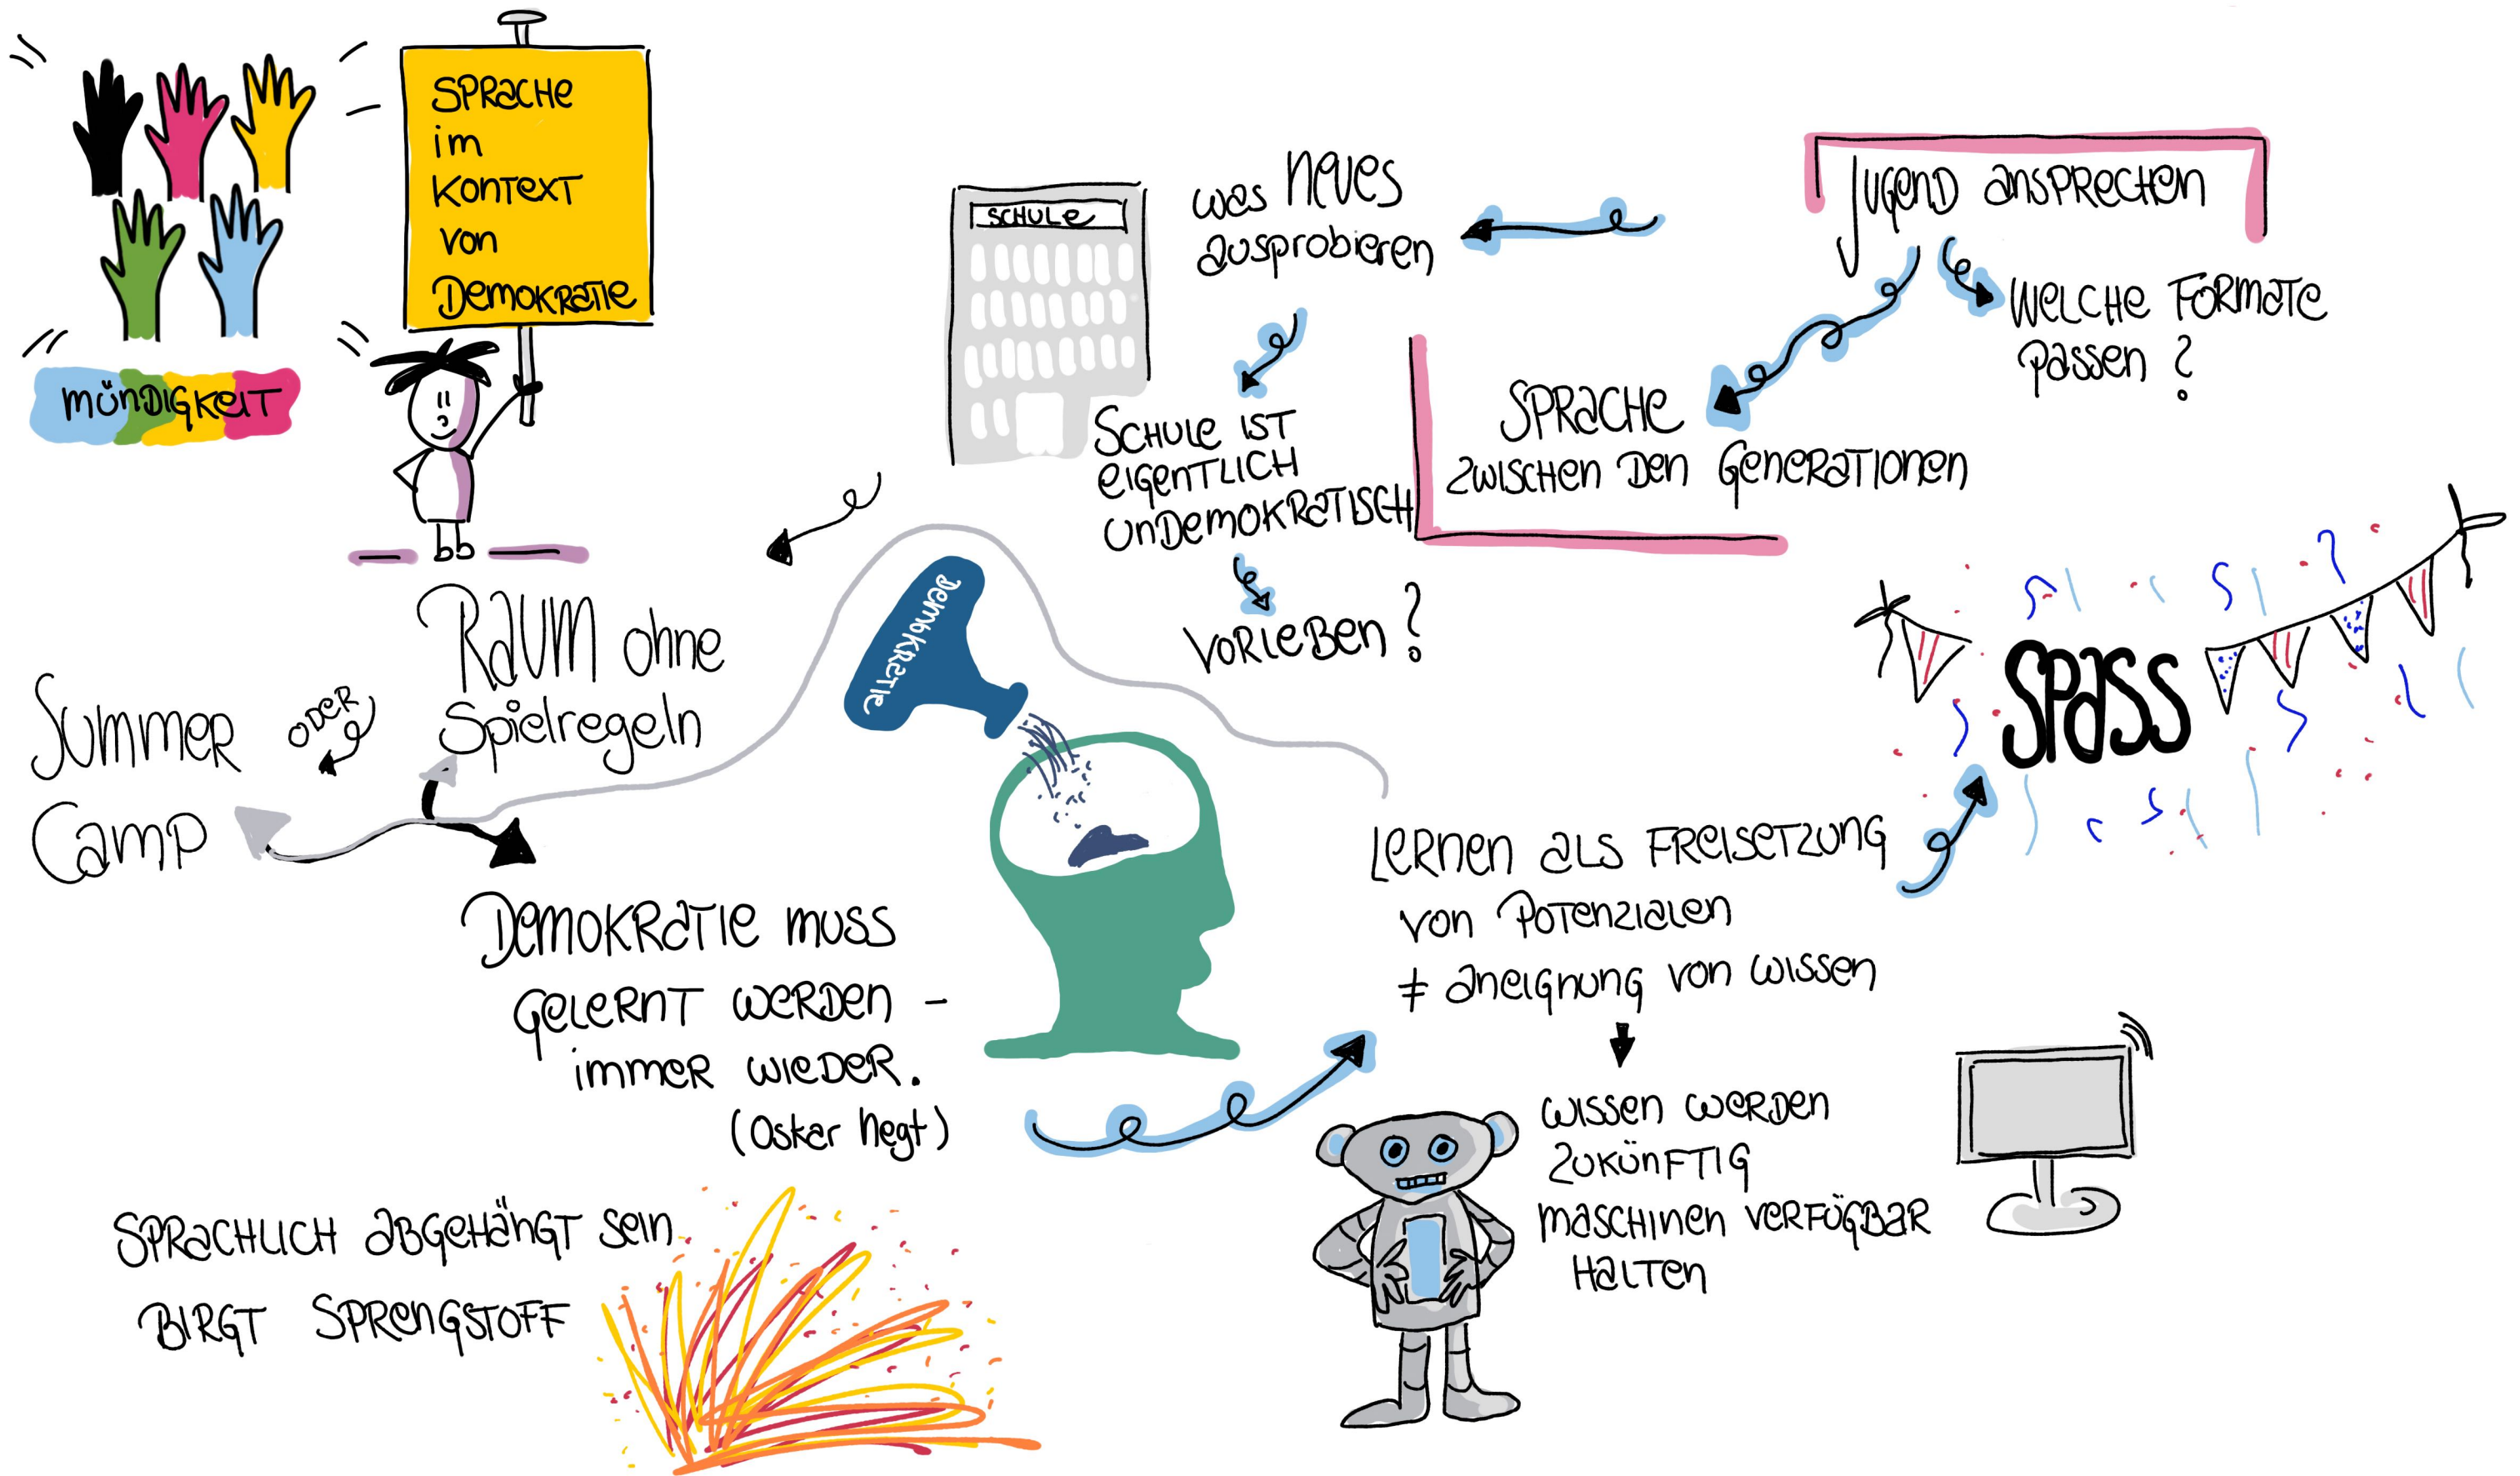 SPRACHE
im
KONTEXT
von
DEMOKRATIE
MÜNDIGKEIT
SCHULE
was NEUES
ausprobieren
JUGEND ANSPRECHEN
WELCHE FORMATE
PASSEN ?
SPRACHE
ZWISCHEN DEN GENERATIONEN
SCHULE IST
EIGENTLICH
UNDEMOKRATISCH
VORLEBEN ?
RAUM ohne
Spielregeln
ODER
SUMMER
CAMP
DEMOKRATIE
SPASS
DEMOKRATIE MUSS
GELERNT WERDEN –
IMMER WIEDER.
(Oskar Negt)
LERNEN ALS FREISETZUNG
VON POTENZIALEN
≠ ANEIGNUNG VON WISSEN
WISSEN WERDEN
ZUKÜNFTIG
MASCHINEN VERFÜGBAR
HALTEN
SPRACHLICH ABGEHÄNGT SEIN
BIRGT SPRENGSTOFF